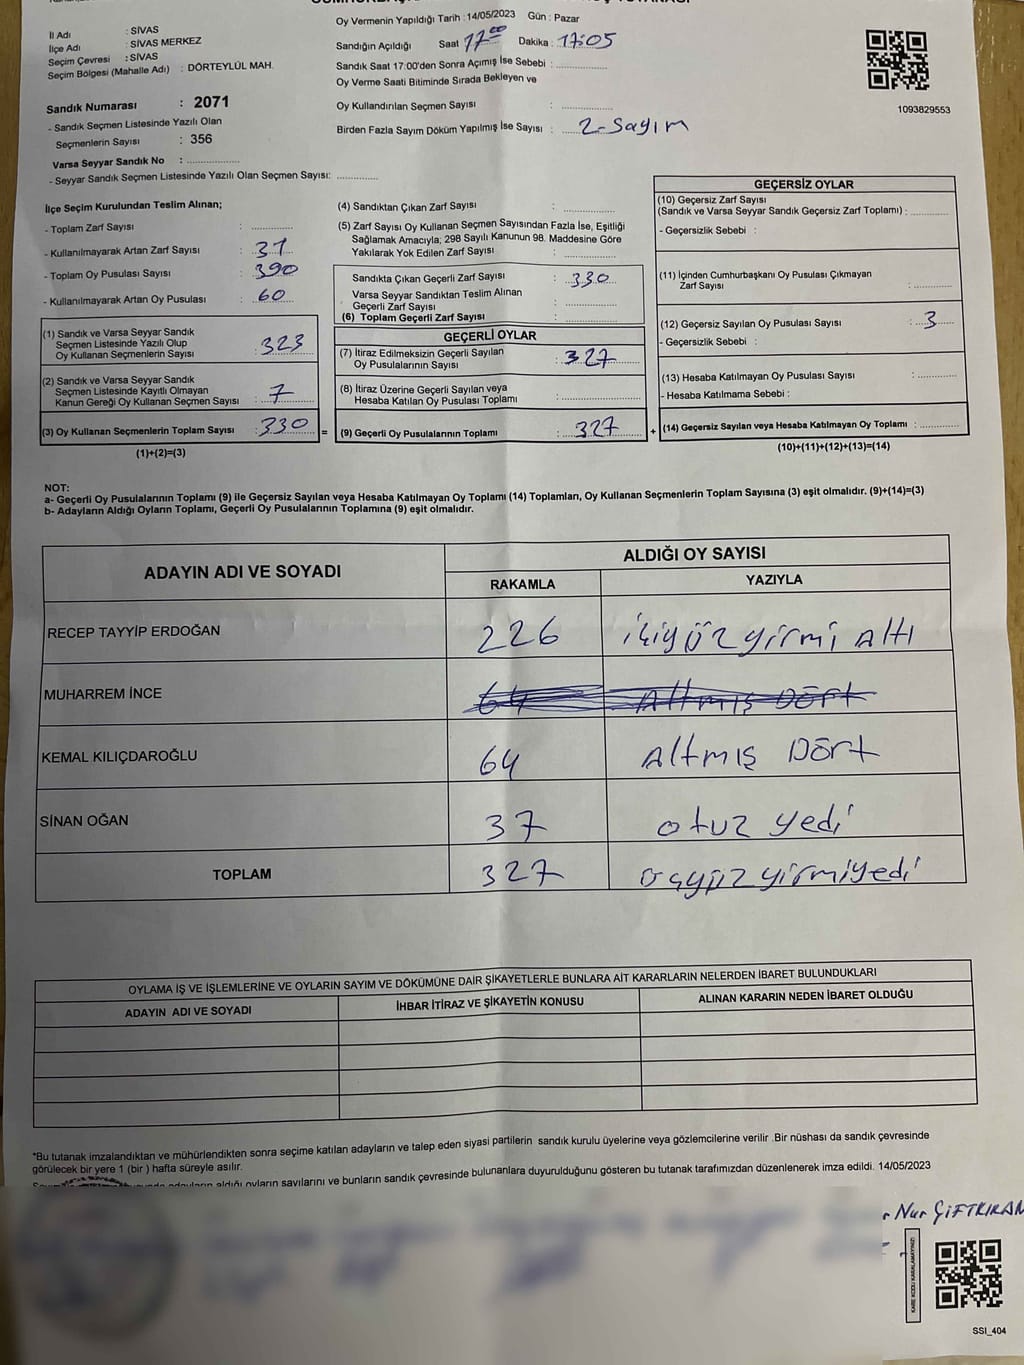 Oy Vermenin Yapıldığı Tarih : 14/05/2023 Gün : Pazar
İl Adı : SİVAS
İlçe Adı : SİVAS MERKEZ
Seçim Çevresi : SİVAS
Seçim Bölgesi (Mahalle Adı) : DÖRTEYLÜL MAH.
Sandığın Açıldığı Saat 17 00 Dakika : 17:05
Sandık Saat 17:00'den Sonra Açımış İse Sebebi : ................
Oy Verme Saati Bitiminde Sırada Bekleyen ve
Oy Kullandırılan Seçmen Sayısı : ................
Birden Fazla Sayım Döküm Yapılmış İse Sayısı : 2-Sayım
1093829553
Sandık Numarası : 2071
- Sandık Seçmen Listesinde Yazılı Olan
Seçmenlerin Sayısı : 356
Varsa Seyyar Sandık No : ................
- Seyyar Sandık Seçmen Listesinde Yazılı Olan Seçmen Sayısı: ............
İlçe Seçim Kurulundan Teslim Alınan;
- Toplam Zarf Sayısı : ............
- Kullanılmayarak Artan Zarf Sayısı : 31
- Toplam Oy Pusulası Sayısı : 390
- Kullanılmayarak Artan Oy Pusulası : 60
(1) Sandık ve Varsa Seyyar Sandık
Seçmen Listesinde Yazılı Olup
Oy Kullanan Seçmenlerin Sayısı : 323
(2) Sandık ve Varsa Seyyar Sandık
Seçmen Listesinde Kayıtlı Olmayan
Kanun Gereği Oy Kullanan Seçmen Sayısı : 7
(3) Oy Kullanan Seçmenlerin Toplam Sayısı : 330 =
(1)+(2)=(3)
(4) Sandıktan Çıkan Zarf Sayısı : ................
(5) Zarf Sayısı Oy Kullanan Seçmen Sayısından Fazla İse, Eşitliği
Sağlamak Amacıyla; 298 Sayılı Kanunun 98. Maddesine Göre
Yakılarak Yok Edilen Zarf Sayısı : ................
Sandıkta Çıkan Geçerli Zarf Sayısı : 330
Varsa Seyyar Sandıktan Teslim Alınan
Geçerli Zarf Sayısı : ................
(6) Toplam Geçerli Zarf Sayısı : ................
GEÇERLİ OYLAR
(7) İtiraz Edilmeksizin Geçerli Sayılan
Oy Pusulalarının Sayısı : 327
(8) İtiraz Üzerine Geçerli Sayılan veya
Hesaba Katılan Oy Pusulası Toplamı : ................
(9) Geçerli Oy Pusulalarının Toplamı : 327 +
GEÇERSİZ OYLAR
(10) Geçersiz Zarf Sayısı
(Sandık ve Varsa Seyyar Sandık Geçersiz Zarf Toplamı) : ............
- Geçersizlik Sebebi :
(11) İçinden Cumhurbaşkanı Oy Pusulası Çıkmayan
Zarf Sayısı : ............
(12) Geçersiz Sayılan Oy Pusulası Sayısı : 3
- Geçersizlik Sebebi :
(13) Hesaba Katılmayan Oy Pusulası Sayısı : ............
- Hesaba Katılmama Sebebi :
(14) Geçersiz Sayılan veya Hesaba Katılmayan Oy Toplamı : ............
(10)+(11)+(12)+(13)=(14)
NOT:
a- Geçerli Oy Pusulalarının Toplamı (9) ile Geçersiz Sayılan veya Hesaba Katılmayan Oy Toplamı (14) Toplamları, Oy Kullanan Seçmenlerin Toplam Sayısına (3) eşit olmalıdır. (9)+(14)=(3)
b- Adayların Aldığı Oyların Toplamı, Geçerli Oy Pusulalarının Toplamına (9) eşit olmalıdır.
ADAYIN ADI VE SOYADI
ALDIĞI OY SAYISI
RAKAMLA YAZIYLA
RECEP TAYYİP ERDOĞAN 226 ikiyüzyirmi Altı
MUHARREM İNCE 64 Altmış Dört
KEMAL KILIÇDAROĞLU 64 Altmış Dört
SİNAN OĞAN 37 otuz yedi
TOPLAM 327 üçyüzyirmiyedi
OYLAMA İŞ VE İŞLEMLERİNE VE OYLARIN SAYIM VE DÖKÜMÜNE DAİR ŞİKAYETLERLE BUNLARA AİT KARARLARIN NELERDEN İBARET BULUNDUKLARI
ADAYIN ADI VE SOYADI İHBAR İTİRAZ VE ŞİKAYETİN KONUSU ALINAN KARARIN NEDEN İBARET OLDUĞU
*Bu tutanak imzalandıktan ve mühürlendikten sonra seçime katılan adayların ve talep eden siyasi partilerin sandık kurulu üyelerine veya gözlemcilerine verilir .Bir nüshası da sandık çevresinde
görülecek bir yere 1 (bir ) hafta süreyle asılır.
adayların aldığı oyların sayılarını ve bunların sandık çevresinde bulunanlara duyurulduğunu gösteren bu tutanak tarafımızdan düzenlenerek imza edildi. 14/05/2023
Nur ÇİFTKIRAN
KARE KODU KARALAMAYINIZ!
SSI_404